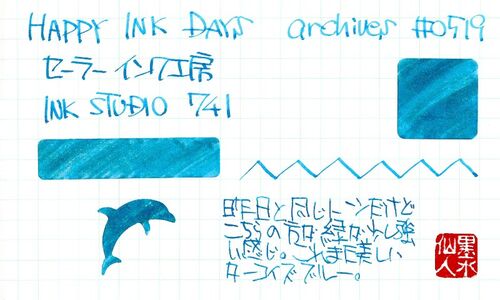 HAPPY INK DAYS archives #0519
セーラーインク工房
INK STUDIO 741
昨日と同じトーンだけど
こちらの方が緑が少し強
い感じ。これまた美しい
ターコイズブルー。
墨水
仙人